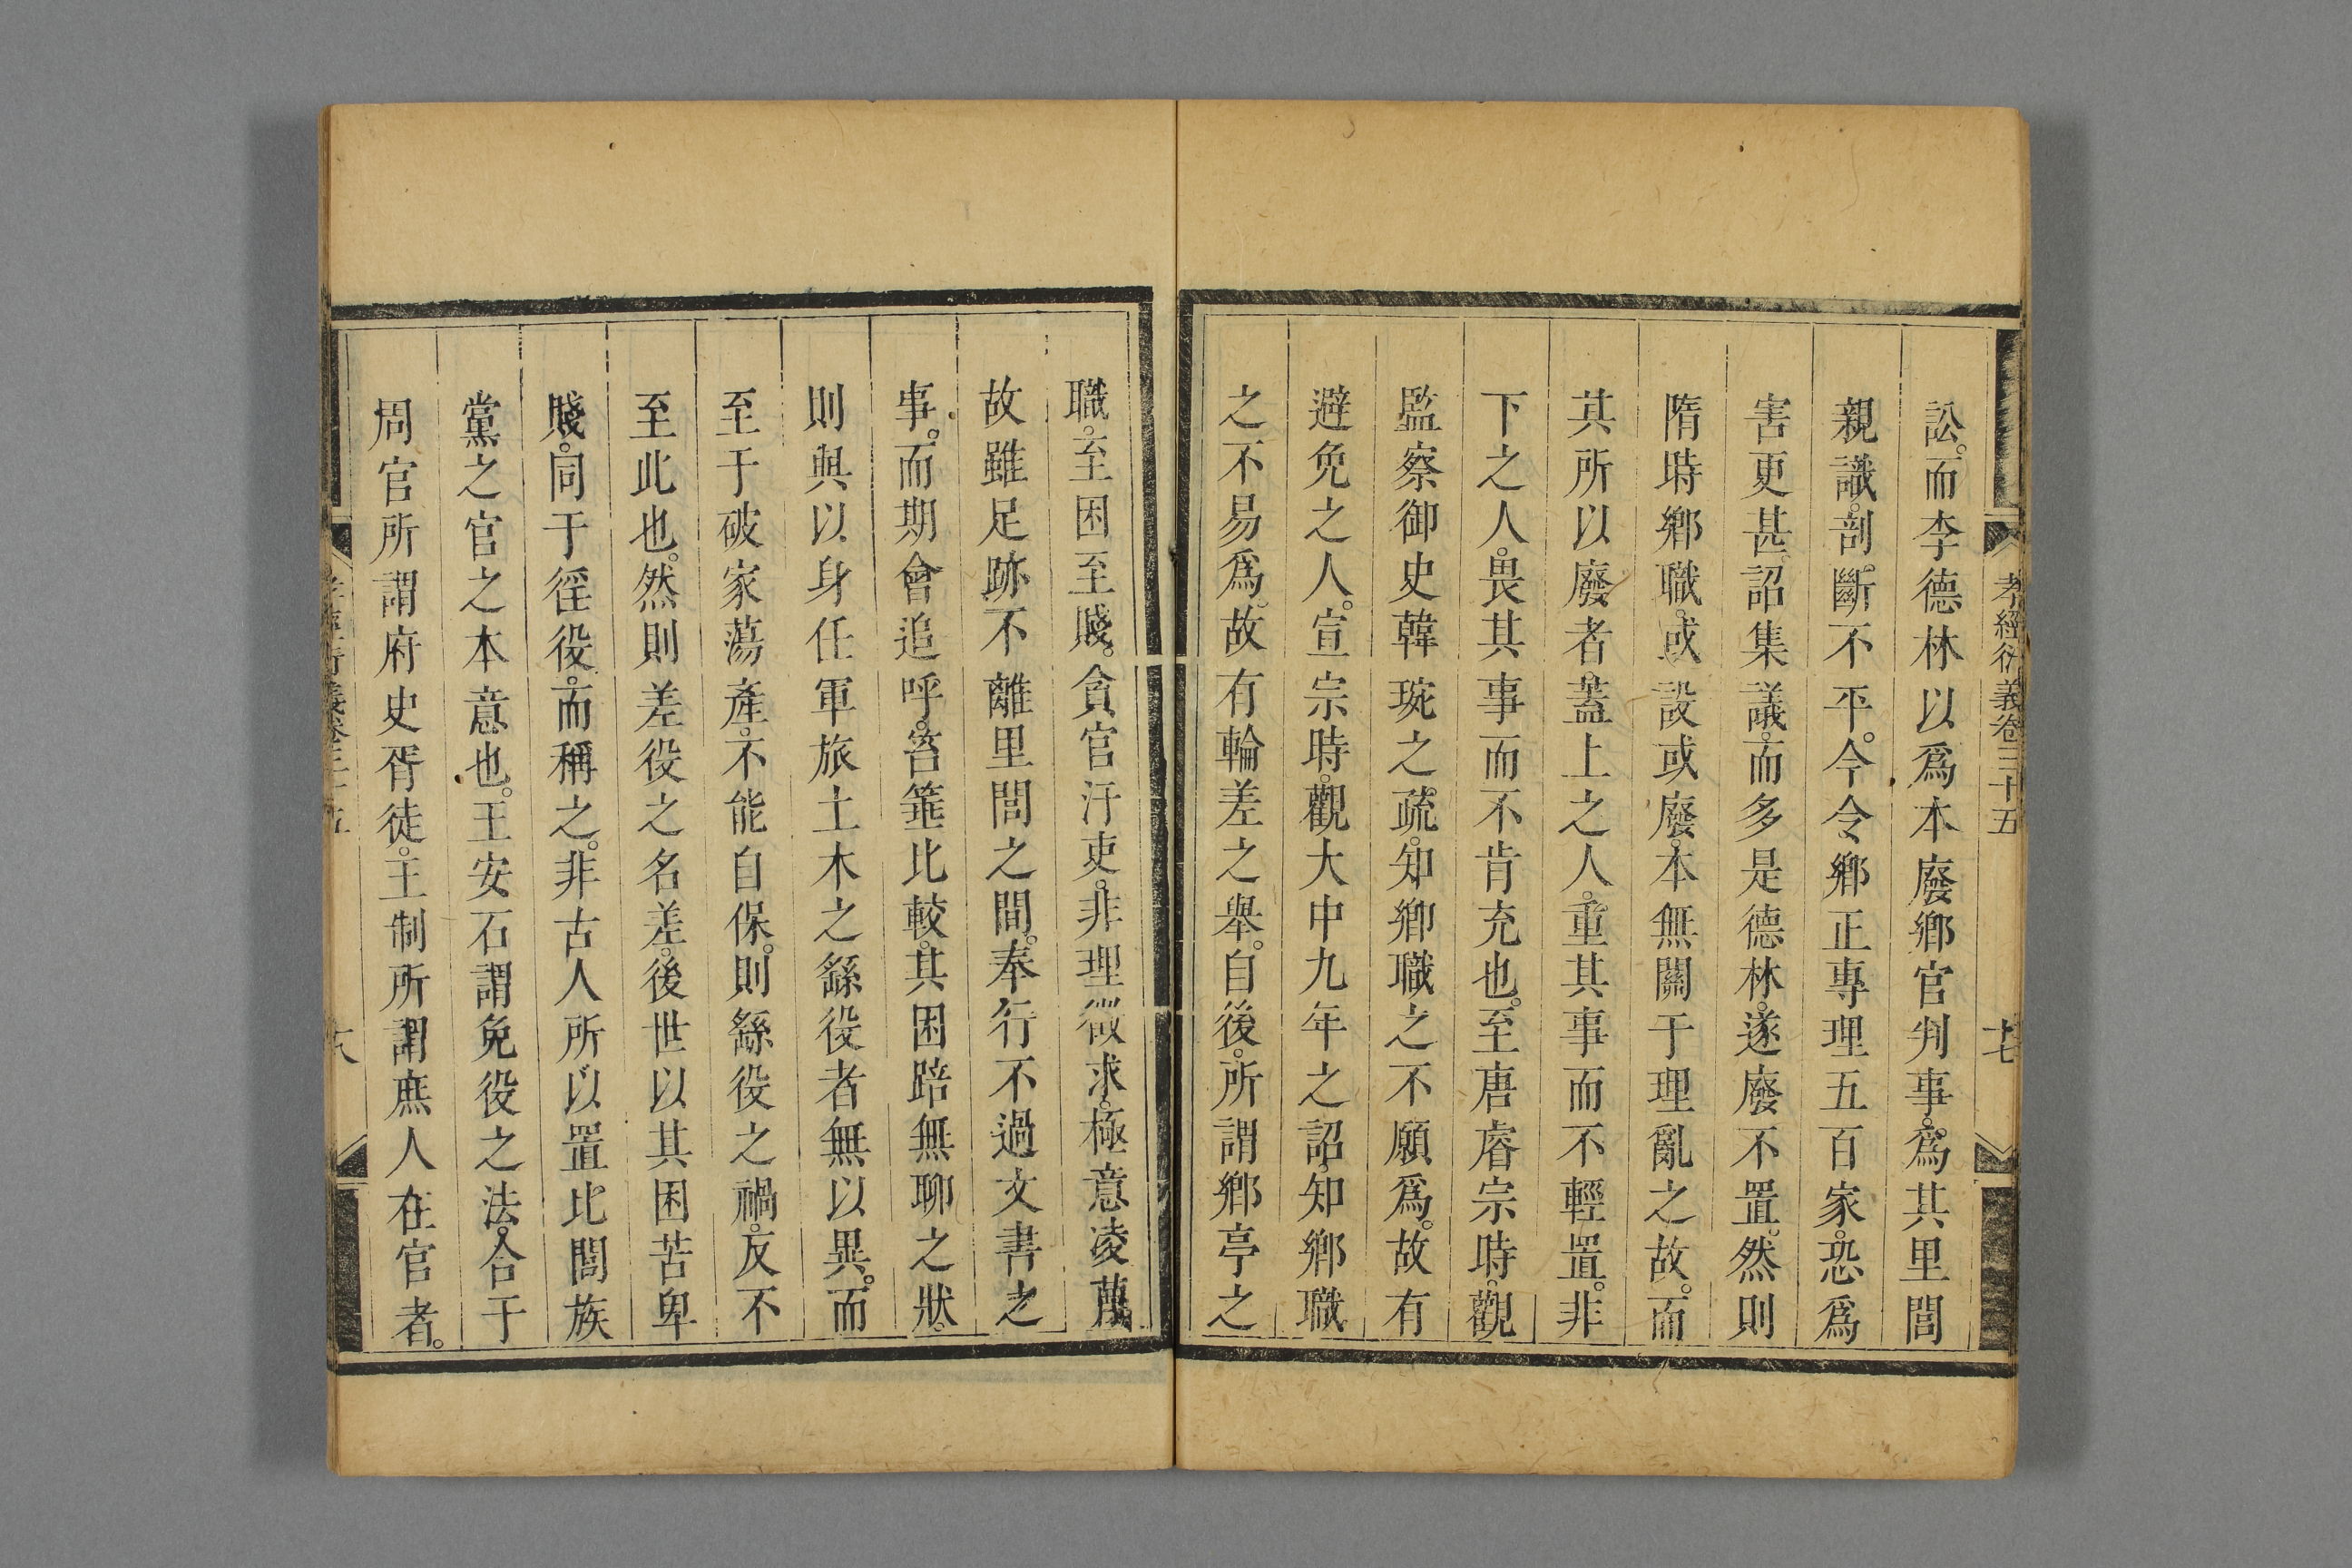 孝經衍義卷三十五
十七
訟。而李德林以爲本廢鄉官判事。爲其里閭
親識。剖斷不平。今令鄉正專理五百家。恐爲
害更甚。詔集議。而多是德林。遂廢不置。然則
隋時鄉職。或設或廢。本無關于理亂之故。而
其所以廢者。蓋上之人。重其事而不輕置。非
下之人。畏其事而不肯充也。至唐睿宗時。觀
監察御史韓琬之疏。知鄉職之不願爲。故有
避免之人。宣宗時。觀大中九年之詔。知鄉職
之不易爲。故有輪差之舉。自後。所謂鄉亭之
職。至困至賤。貪官汙吏。非理徴求。極意凌蔑。
故雖足跡不離里閭之間。奉行不過文書之
事。而期會追呼。笞箠比較。其困踣無聊之狀。
則與以身任軍旅土木之繇役者無以異。而
至于破家蕩產。不能自保。則繇役之禍。反不
至此也。然則差役之名差。後世以其困苦卑
賤。同于徭役。而稱之。非古人所以置比閭族
黨之官之本意也。王安石謂免役之法。合于
周官所謂府史胥徒。王制所謂庶人在官者。